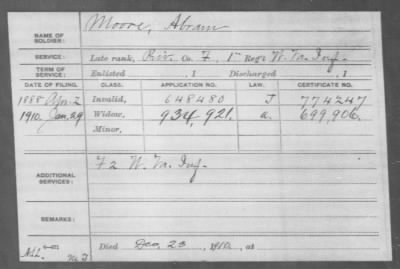 Moore, Abram
NAME OF SOLDIER:
SERVICE: Late rank, Priv. Co. F, 1 Reg't N. M. Inf.
TERM OF SERVICE: Enlisted , 1 Discharged , 1
DATE OF FILING. CLASS. APPLICATION NO. LAW. CERTIFICATE NO.
1888 Apr. 2 Invalid, 648480 J 774247
1910. Jan. 29 Widow, 934,921. a. 699,906.
Minor,
ADDITIONAL SERVICES: F 2 N. M. Inf.
REMARKS:
Died Dec. 23, 1910, at